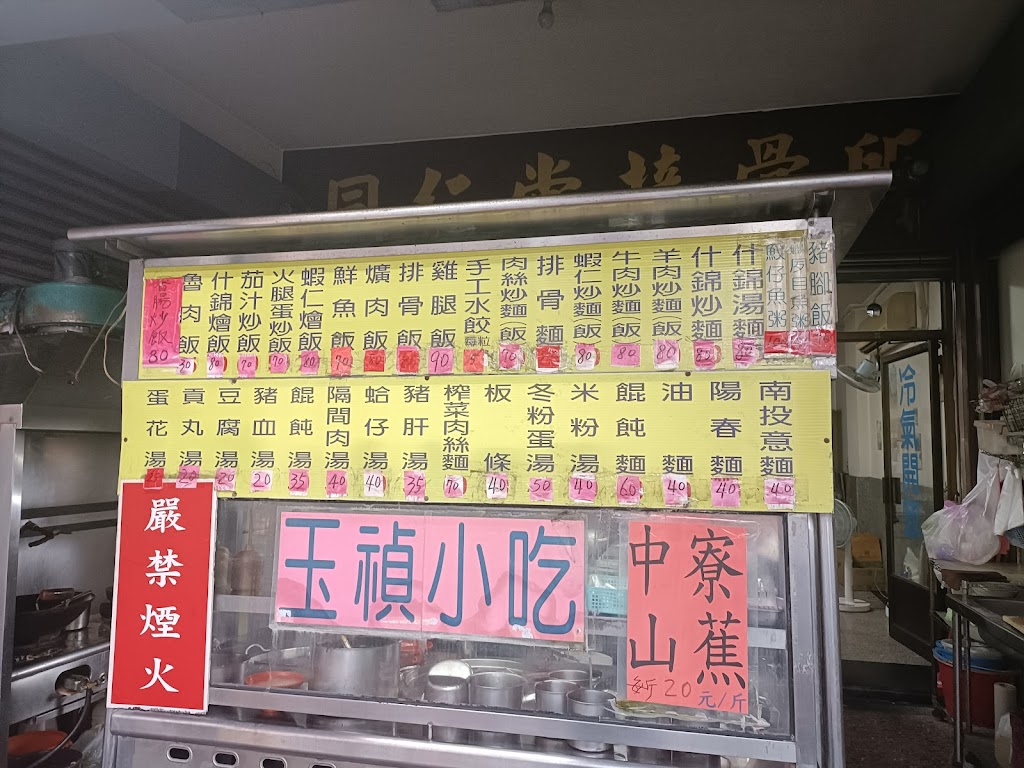 同仁堂接骨所
豬腳飯
魩仔魚粥
什錦湯麵
什錦炒麵 80
羊肉炒麵(飯) 80
牛肉炒麵(飯) 80
蝦仁炒麵(飯) 80
排骨麵
肉絲炒麵(飯) 70
手工水餃(每粒) 5
雞腿飯 90
排骨飯
爌肉飯
鮮魚飯 70
蝦仁燴飯 80
火腿蛋炒飯 70
茄汁炒飯 70
什錦燴飯 80
魯肉飯 30
炒飯 80
南投意麵 40
陽春麵 40
油麵 40
餛飩麵 60
米粉湯 40
冬粉蛋湯 50
板條 40
榨菜肉絲麵 70
豬肝湯 35
蛤仔湯 40
隔間肉湯 40
餛飩湯 35
豬血湯 20
豆腐湯 20
貢丸湯 20
蛋花湯
嚴禁煙火
玉禎小吃
中寮
山蕉
每斤20元/斤
冷氣開